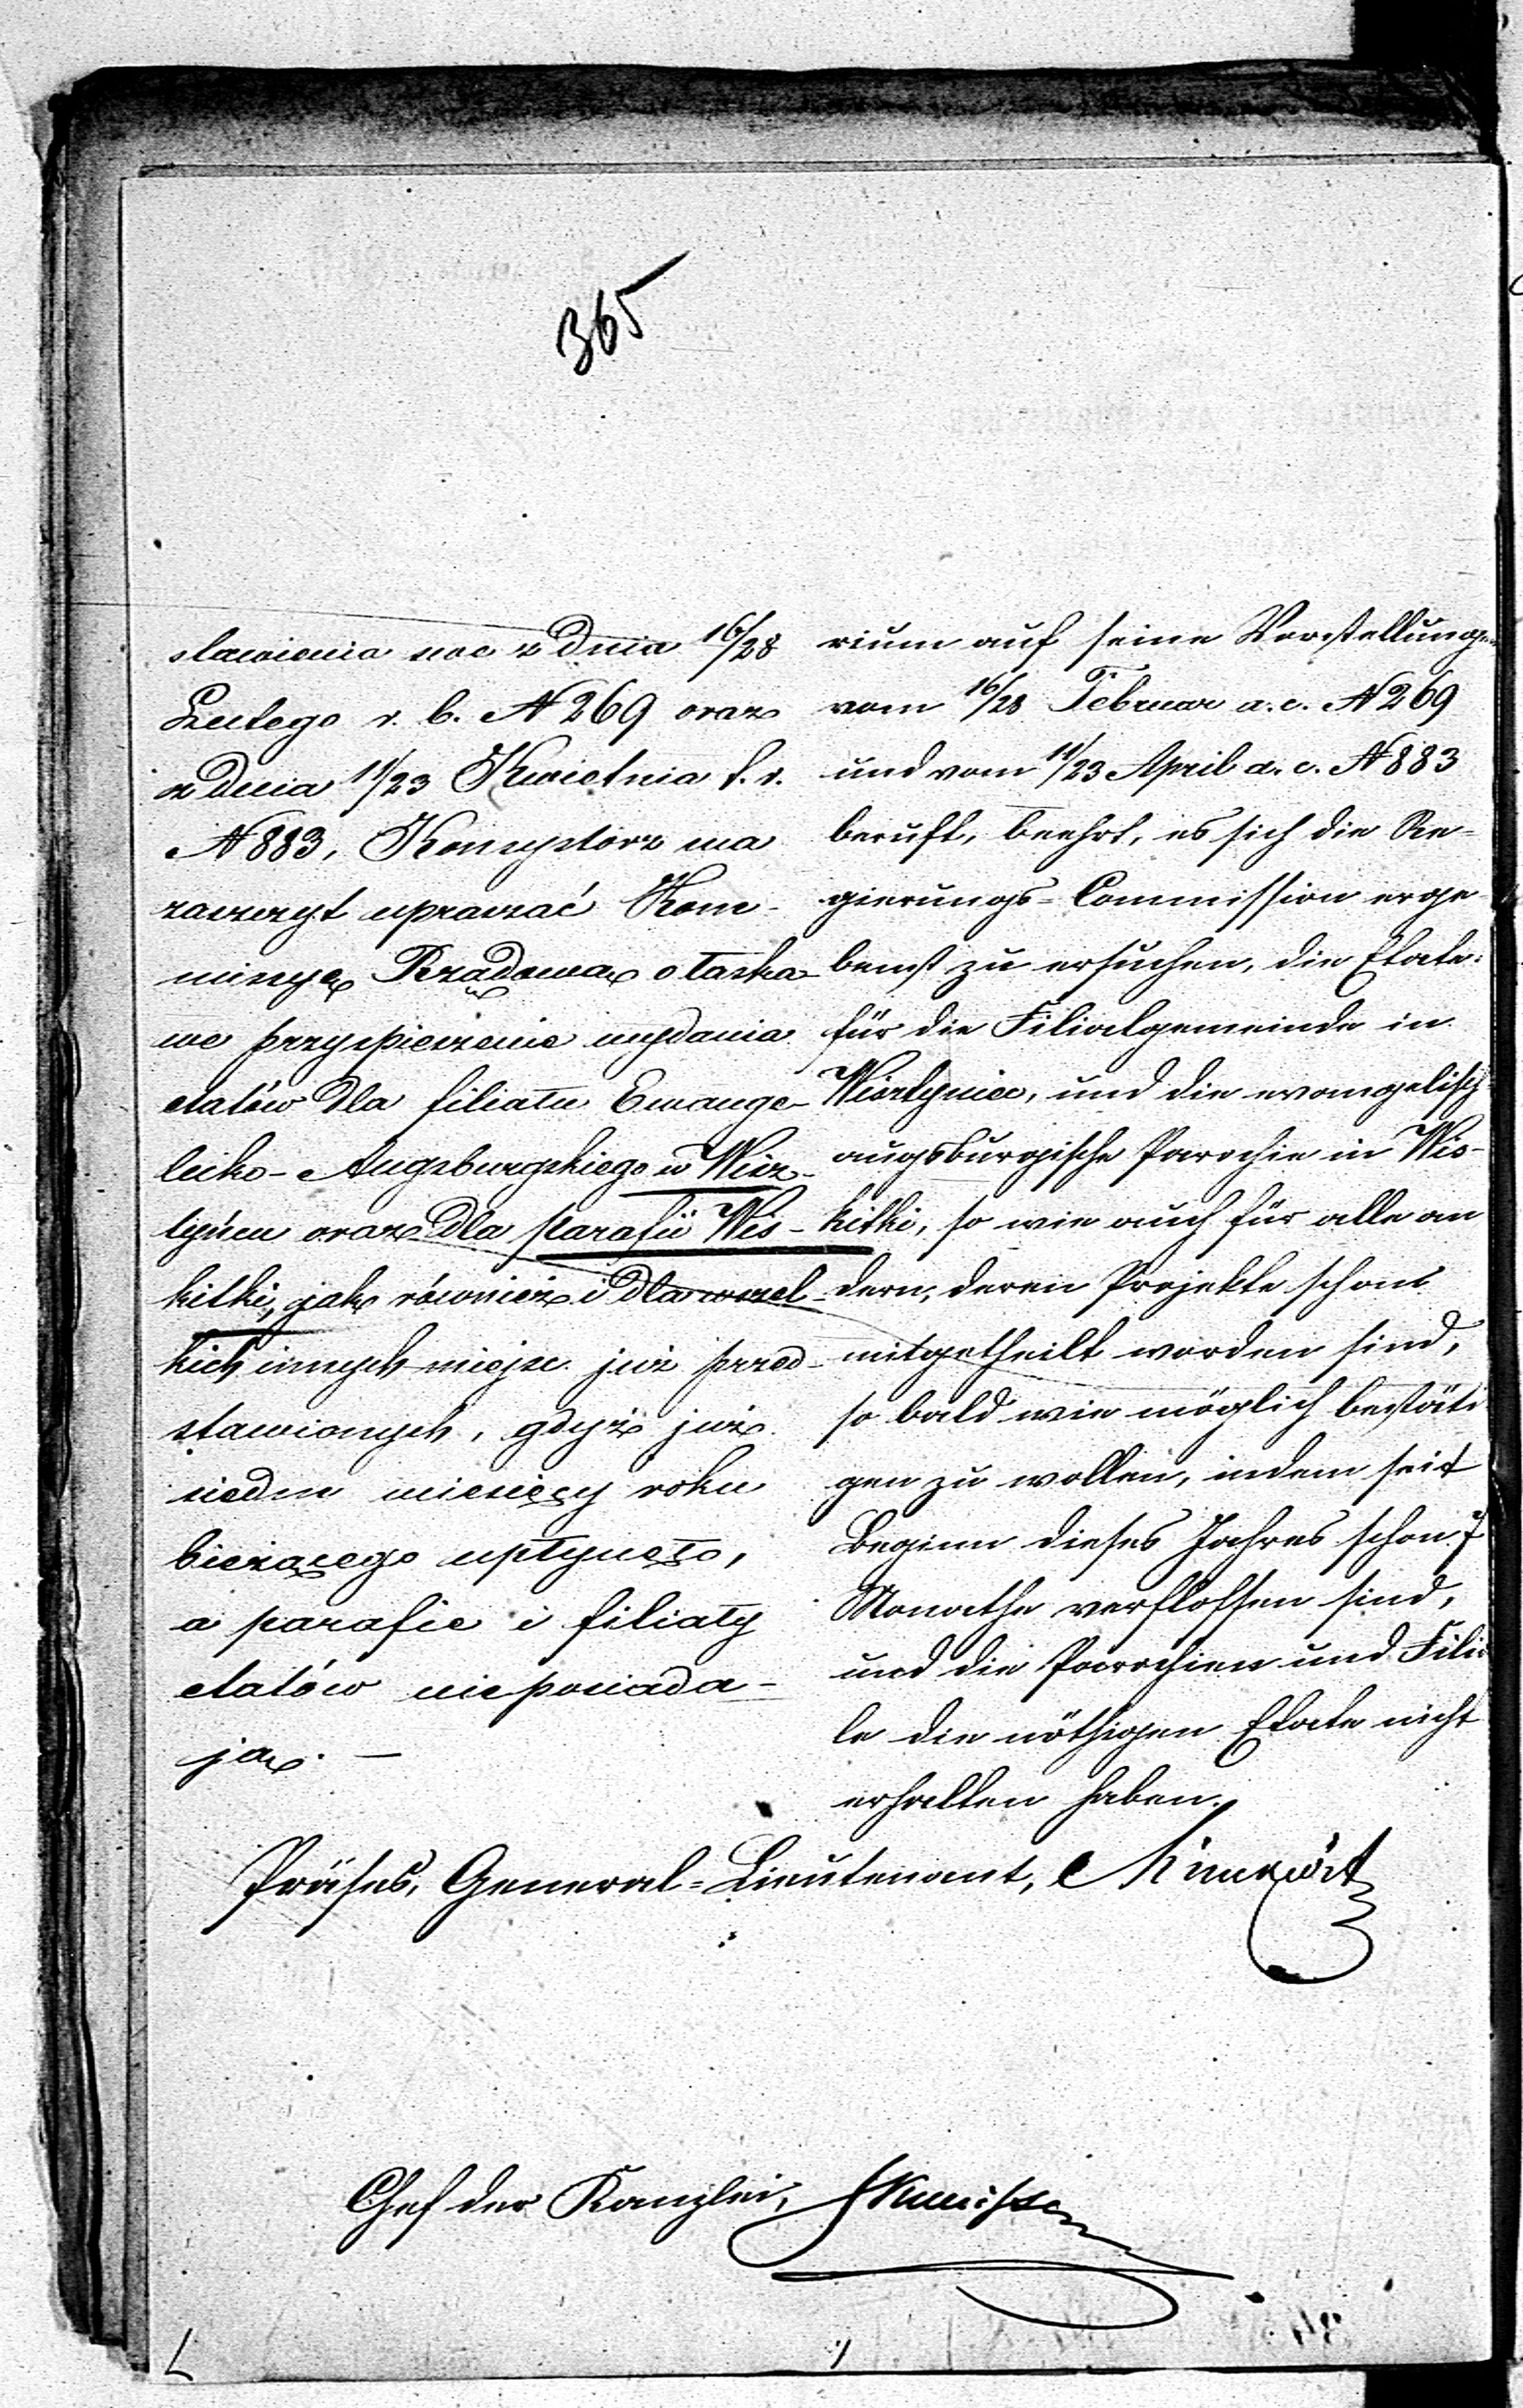 365
stawienia swe z dnia 16/28
Lutego r. b. N 269 oraz
z dnia 11/23 Kwietnia t. r.
N 883, Konsystorz ma
zaszczyt upraszać Kom-
missyę Rządową o łaska-
we przyspieszenie wydania
etatów dla filiału Ewange-
licko-Augsburgskiego w Wisz-
tyńcu oraz dla parafii Wis-
kitki, jak również i dla wszel-
kich innych miejsc już przed-
stawionych, gdyż już
siedm miesięcy roku
bieżącego upłynęło,
a parafie i filiały
etatów nie posiada-
ją. —
rium auf seine Vorstellungen
vom 16/28 Februar a. c. N 269
und vom 11/23 April a. c. N 883
beruft, beehrt, es sich die Re-
gierungs-Commission erge-
benst zu ersuchen, die Etate
für die Filialgemeinde in
Wisztyniec, und die evangelisch
augsburgische Parochie in Wis-
kitki, so wie auch für alle an
dern, deren Projekte schon
mitgetheilt worden sind,
so bald wie möglich bestäti
gen zu wollen, indem seit
Beginn dieses Jahres schon 7
Monathe verflossen sind,
und die Parochien und Filia
le die nöthigen Etate nicht
erhalten haben.
Präses, General-Lieutenant,
Chef der Kanzlei,